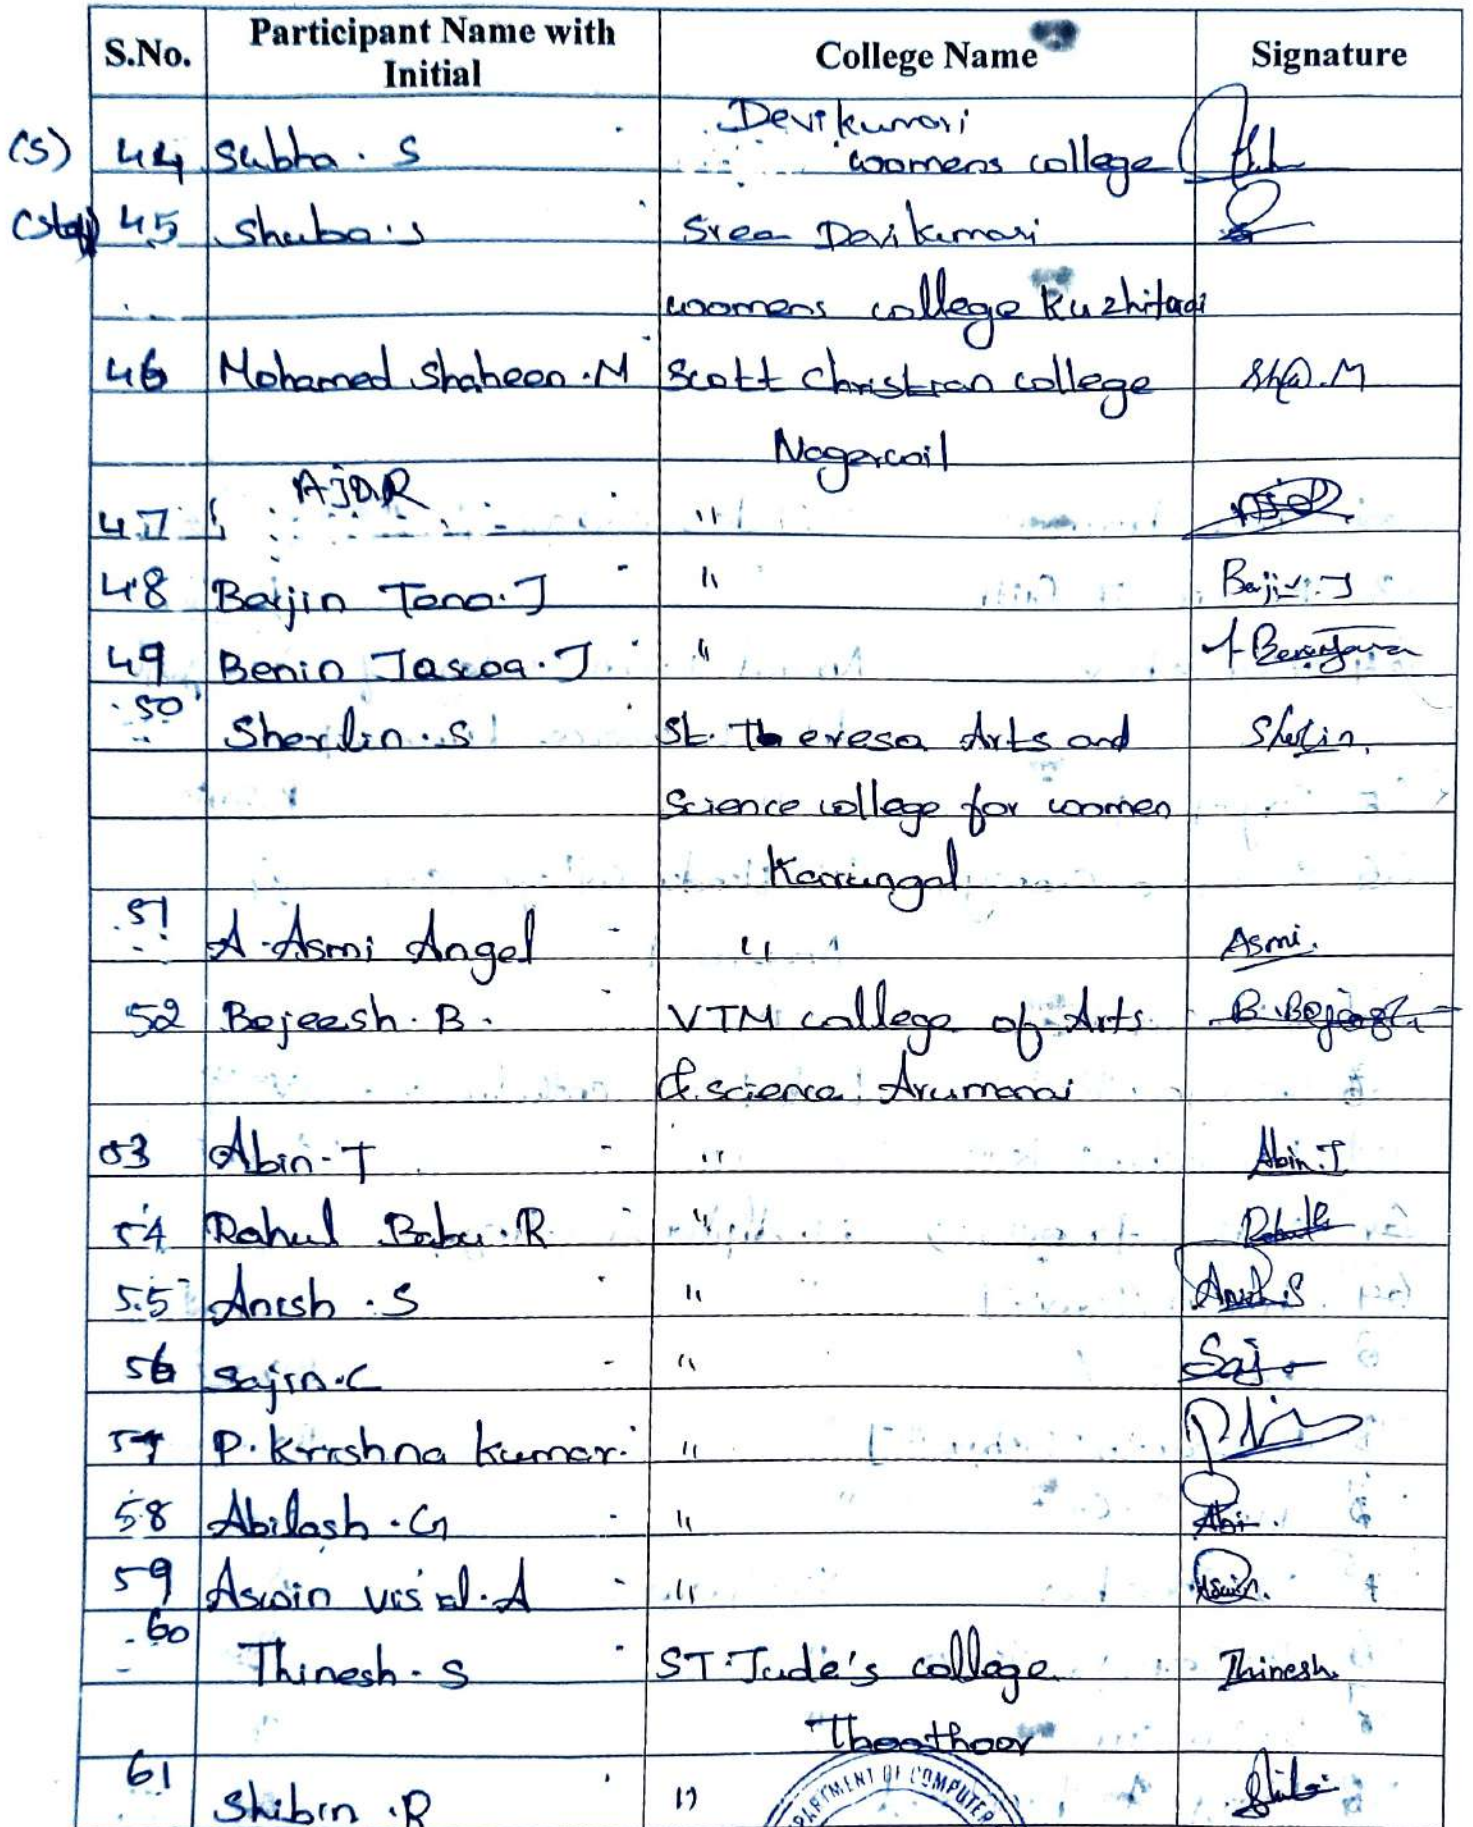 S.No. Participant Name with Initial College Name Signature
Devikumari
(S) 44 Subha . S womens college
(Staff) 45 Shuba . S Sree Devikumari
womens college Kuzhiturai
46 Mohamed Shaheen . M Scott Christian college Sh@.M
Nagercoil
AJO.R
47 "
48 Baijin Tono . J " Baijin . J
49 Benin Jascoa . J "
50 Sherlin . S St. Theresa Arts and Sherlin.
Science college for women
Karungal
51 A . Asmi Angel " Asmi.
52 Bejeesh . B . VTM college of Arts B. Bejeesh
& science Arumanai
53 Abin - T " Abin . T
54 Rahul Babu . R "
55 Anish . S " Anish . S
56 Sajin . C " Saj
57 P. Krishna Kumar . "
58 Abilash . G " Abi.
59 Aswin visal . A " Aswin.
60 Thinesh . S ST. Jude's college Thinesh.
Thoothoor
61 Shibin . R "
DEPARTMENT OF COMPUTER